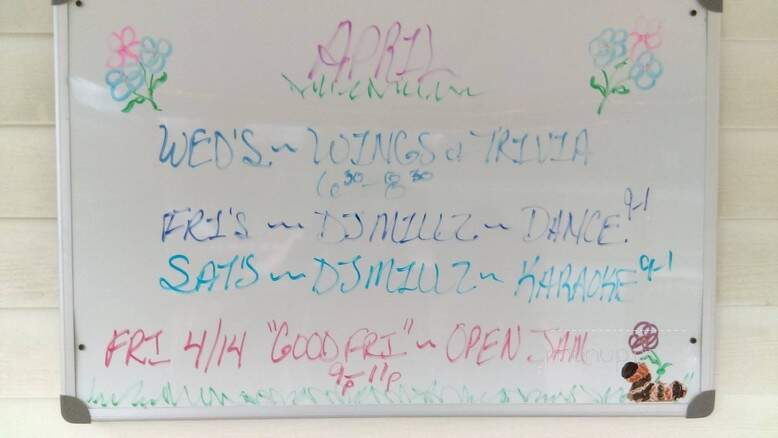 APRIL
WED'S. ~ WINGS & TRIVIA
6:30 - 8:30
FRI'S ~ DJ MILLZ ~ DANCE! 9-1
SAT'S ~ DJ MILLZ ~ KARAOKE 9-1
FRI 4/14 "GOOD FRI" ~ OPEN JAM
9p-11p